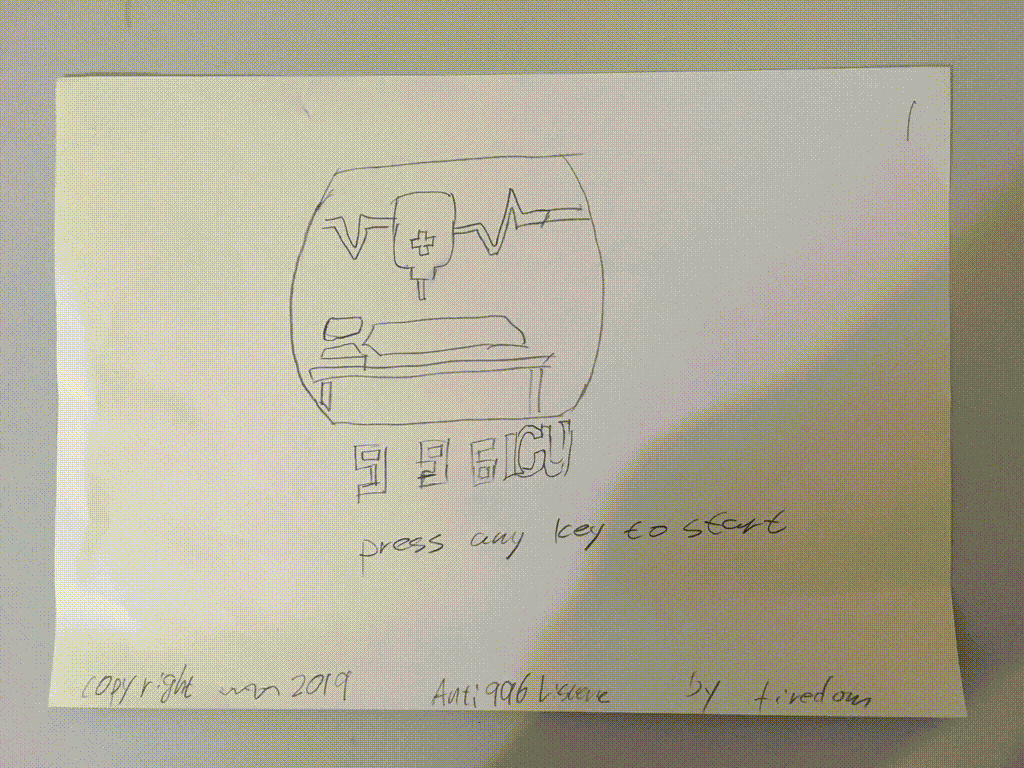 1
996ICU
press any key to start
copyright 2019 Anti996 by firedom